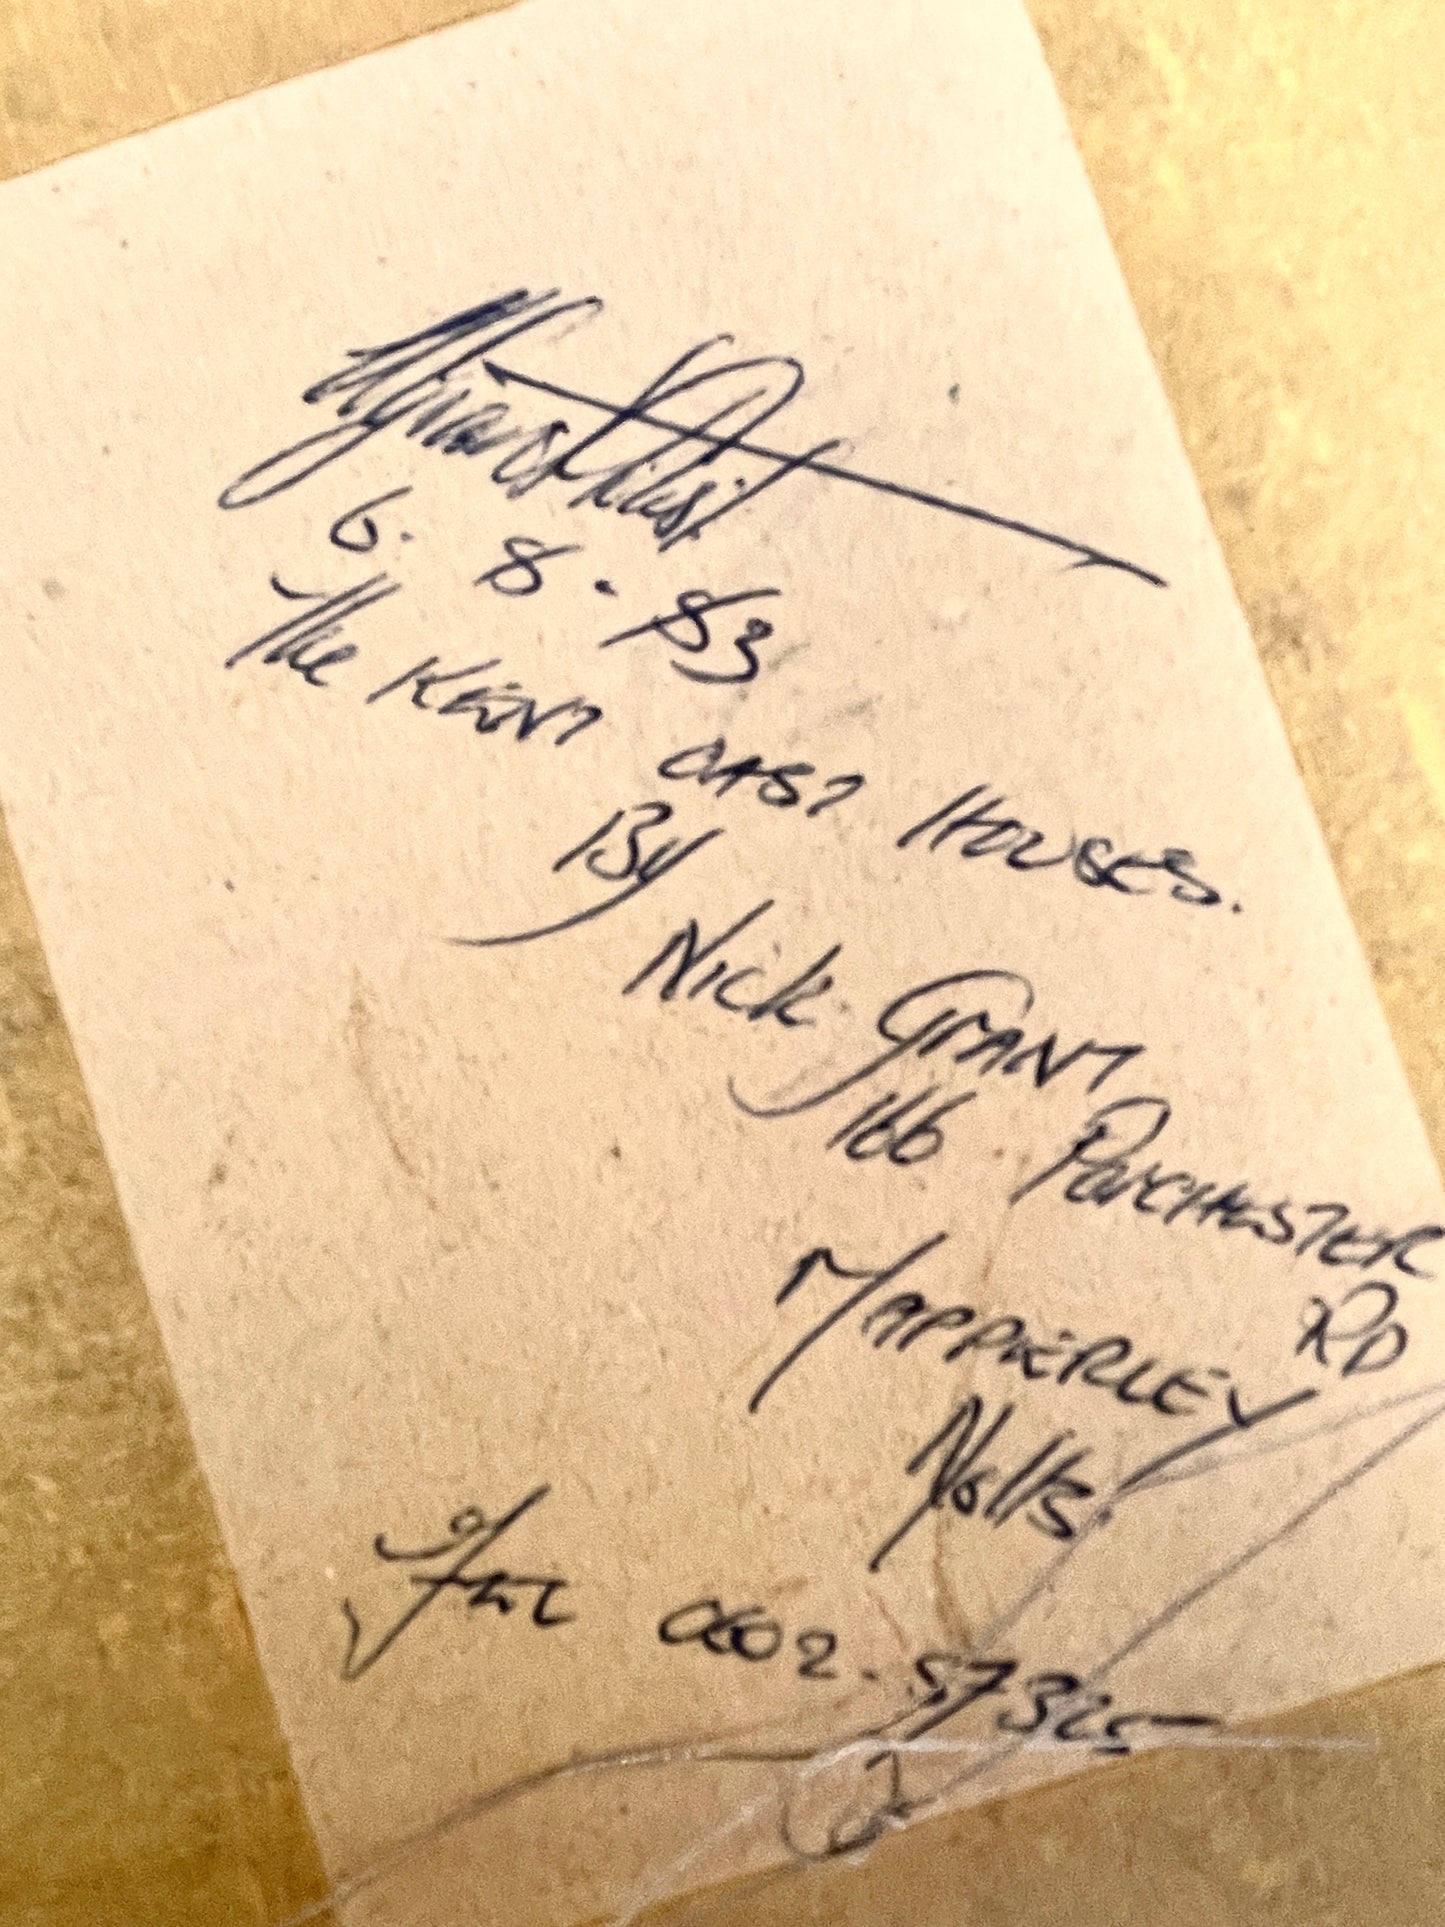 6. 8. 83
The KENT OAST HOUSES.
By
Nick GRANT
166 PORCHESTER
RD
MAPPERLEY
Notts.
Tel 0602. 57325